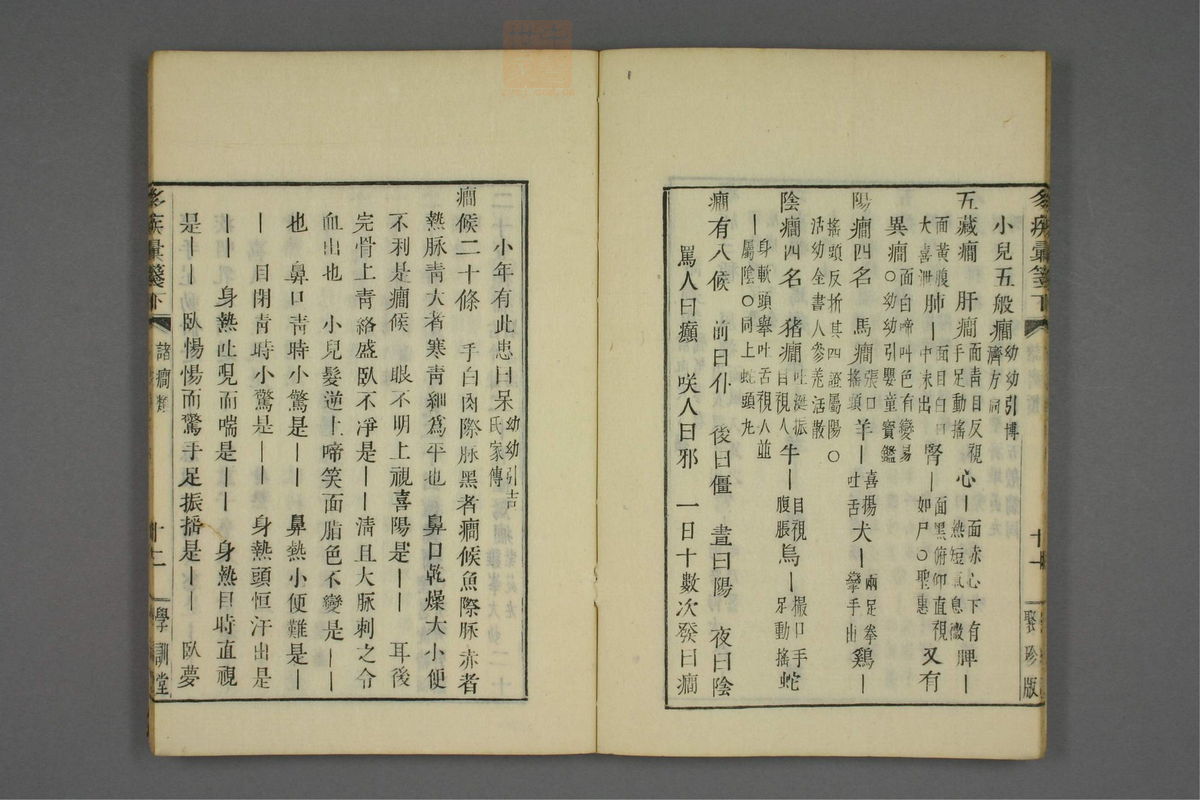 小兒五般癇幼幼引博濟方祠
五藏癇　肝癇面青目反視手足動搖　心｜面赤心下有熱短氣息微　脾｜
面黃腹大喜泄　肺｜面目白口中沫出　腎｜面黑俯仰直視如尸○聖惠　又有
異癇面白啼叫色有變易○幼幼引嬰童寶鑑
陽癇四名　馬癇張口搖頭　羊｜喜揚吐舌　犬｜兩足拳攣手曲　鷄｜
搖頭反折其四證屬陽○活幼全書人參羗活散
陰癇四名　猪癇吐涎振目視人　牛｜目視腹脹　烏｜撮口手足動搖　蛇
｜身軟頭舉吐舌視人並屬陰○同上蛇頭丸
癇有八候　前曰仆　後曰僵　晝曰陽　夜曰陰
罵人曰癲　咲人曰邪　一日十數次發曰癇
多疾彙箋下　諸癇　十一　聚珍版
小年有此患曰呆幼幼引吉氏家傳
癇候二十條　手白肉際脉黑者癇候魚際脉赤者
熱脉青大者寒青細爲平也　鼻口乾燥大小便
不利是癇候　眼不明上視喜陽是｜｜　耳後
完骨上青絡盛臥不凈是｜｜清旦大脉刺之令
血出也　小兒髮逆上啼笑面脂色不變是｜｜
也　鼻口青時小驚是｜｜　鼻熱小便難是｜
｜　目閉青時小驚是｜｜　身熱頭恒汗出是
｜｜　身熱吐哯而喘是｜｜　身熱目時直視
是｜｜　臥惕惕而驚手足振搖是｜｜　臥夢
多疾彙箋下　諸癇　十二　學訓堂